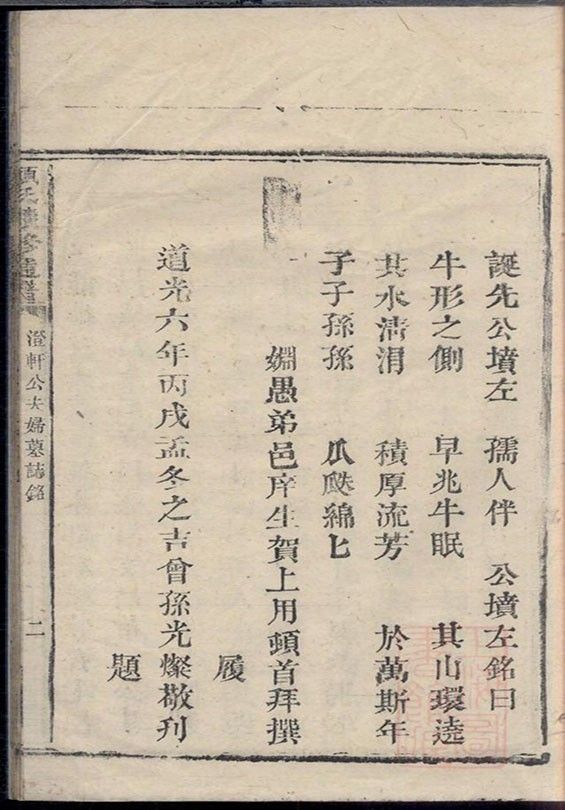 誕先公墳左　孺人伴　公墳左銘曰
牛形之側　早兆牛眠　其山環遶
其水淸涓　積厚流芳　於萬斯年
子子孫孫　瓜瓞綿匕
婣愚弟邑庠生賀上用頓首拜撰
履
道光六年丙戌孟冬之吉曾孫光燦敬刋
題
氏續修通譜
澄軒公夫婦墓誌銘
二